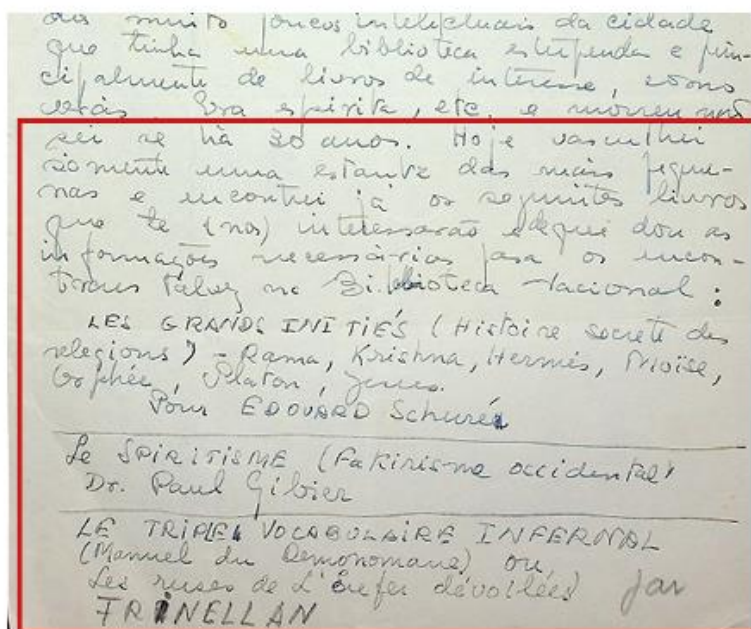 dos muito poucos intelectuais da cidade
que tinha uma biblioteca estupenda e prin-
cipalmente de livros de interesse, como
verás. Era espirita, etc. e morreu não
sei se há 30 anos. Hoje vasculhei
somente uma estante das mais peque-
nas e encontrei já os seguintes livros
que te (nos) interessarão e aqui dou as
informações necessárias para os encon-
trares talvez na Biblioteca Nacional:
LES GRANDS INITIÉS (Histoire secrete des
relegions) - Rama, Krishna, Hermés, Moïse,
Orphée, Platon, Jesus.
Pour EDOUARD Schuré
Le SPIRITISME (Fakirisme occidental)
Dr. Paul Gibier
LE TRIPLE VOCABULAIRE INFERNAL
(Manuel du Demonomane) ou,
Les ruses de L'Enfer dévoilées) par
FRINELLAN